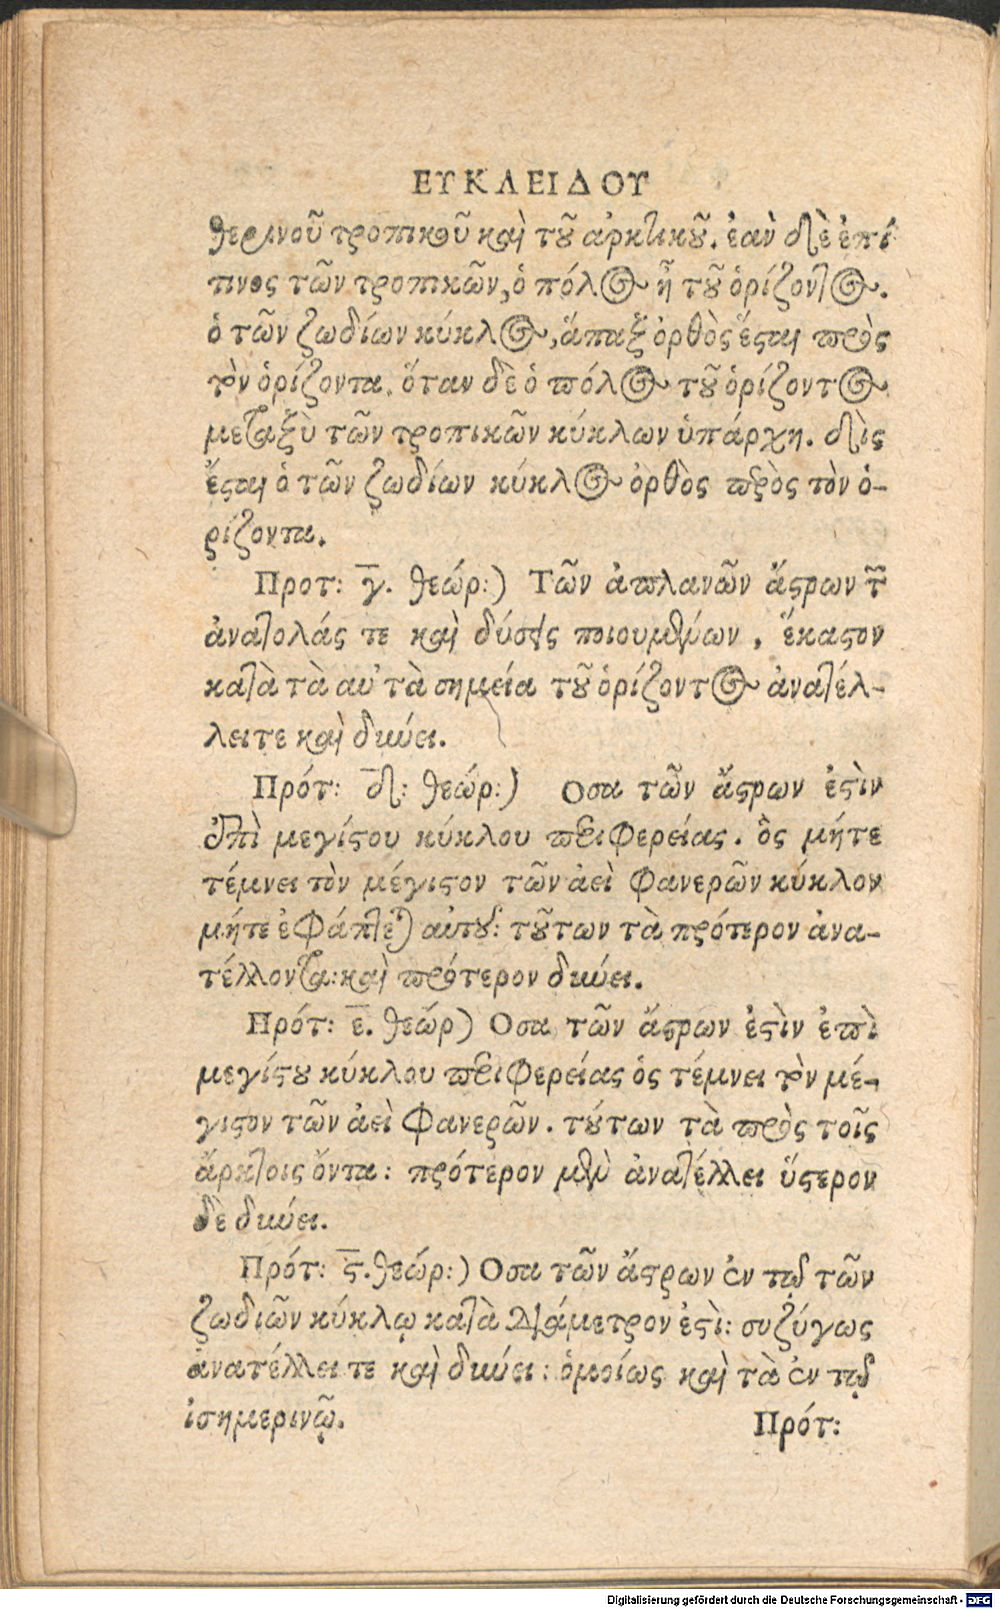 ΕΥΚΛΕΙΔΟΥ
θερινοῦ τροπικοῦ καὶ τοῦ ἀρκτικοῦ. ἐαν δὲ ἐπί
τινος τῶν τροπικῶν, ὁ πόλος ἦ τοῦ ὁρίζοντος.
ὁ τῶν ζωδίων κύκλος, ἅπαξ ὀρθὸς ἔσται πρὸς
τὸν ὁρίζοντα. ὅταν δὲ ὁ πόλος τοῦ ὁρίζοντος
μεταξὺ τῶν τροπικῶν κύκλων ὑπάρχη. δὶς
ἔσται ὁ τῶν ζωδίων κύκλος ὀρθὸς πρὸς τὸν ὁ-
ρίζοντα.
Προτ: γ̅. θεώρ:) Τῶν ἀπλανῶν ἄστρων τ̃
ἀνατολάς τε καὶ δύσεις ποιουμένων, ἕκαστον
κατὰ τὰ αὐτὰ σημεία τοῦ ὁρίζοντος ἀνατέλ-
λει τε καὶ δύνει.
Πρότ: δ̅: θεώρ:) Οσα τῶν ἄστρων ἐστὶν
ἐπὶ μεγίστου κύκλου περιφερείας. ὃς μήτε
τέμνει τὸν μέγιστον τῶν ἀεὶ φανερῶν κύκλον
μήτε ἐφάπτεται αὐτοῦ: τούτων τὰ πρότερον ἀνα-
τέλλοντα: καὶ πρότερον δύνει.
Πρότ: ε̅. θεώρ) Οσα τῶν ἄστρων ἐστὶν ἐπὶ
μεγίστου κύκλου περιφερείας ὁς τέμνει τὸν μέ-
γιστον τῶν ἀεὶ φανερῶν. τούτων τὰ πρὸς τοῖς
ἄρκτοις ὄντα: πρότερον μὲν ἀνατέλλει ὕστερον
δὲ δύνει.
Πρότ: ϛ̅. θεώρ:) Οσα τῶν ἄστρων ἐν τῷ τῶν
ζωδιῶν κύκλῳ κατὰ διάμετρον ἐστὶ: συζύγως
ἀνατέλλει τε καὶ δύνει: ὁμοίως καὶ τὰ ἐν τῷ
ἰσημερινῷ. Πρότ:
Digitalisierung gefördert durch die Deutsche Forschungsgemeinschaft - DFG